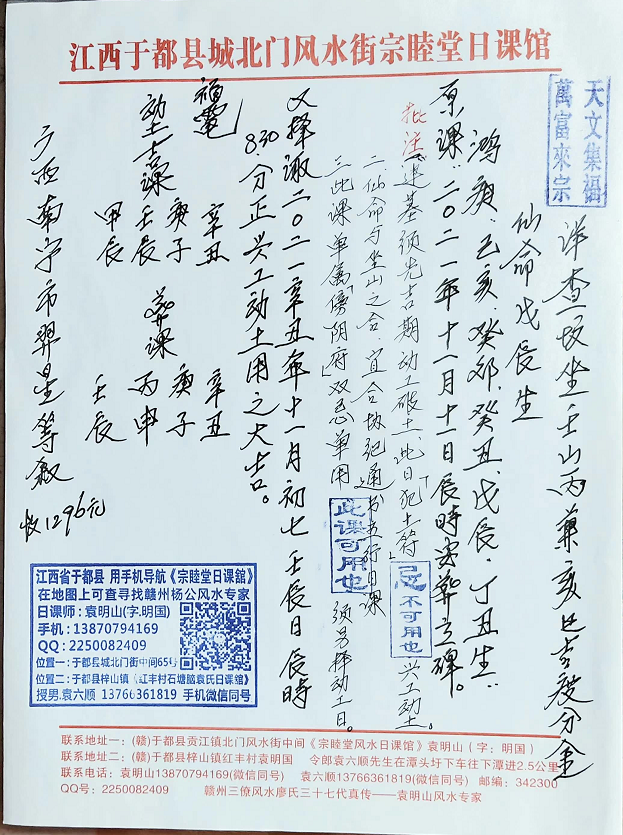 江西于都县城北门风水街宗睦堂日课馆
天文集福
萬富來宗
详查一坟坐壬山丙兼亥巳吉度分金
仙命戊辰生
鸿庚:己亥、癸卯、癸丑、戊辰、丁丑生:
原课:二〇二一年十一月十一日辰时安葬立碑。
批注:一进基须先吉期动工破土,此日犯土符 忌不可用也 兴工动土。
二仙命与坐山之合,宜合扶纪通书五行日课
三此课单属傍阴府双忌单用 此课可用也 须另择动工日。
又择诹二〇二一辛丑年十一月初七壬辰日辰时
830分正兴工动土用之大吉。
福電
动土吉课
辛丑
庚子
壬辰
甲辰
葬课
辛丑
庚子
丙申
壬辰
广西南宁市羿星等叙
收1296元
江西省于都县 用手机导航《宗睦堂日课馆》
在地图上可查寻找赣州杨公风水专家
日课师:袁明山(字.明国)
手机:13870794169
QQ:2250082409
位置一:于都县城北门街中间65号
位置二:于都县梓山镇《红丰村石塘脑袁氏日课馆》
授男.袁六顺 13766361819 手机微信同号
联系地址一:(赣)于都县贡江镇北门风水街中间《宗睦堂风水日课馆》袁明山(字:明国)
联系地址二:(赣)于都县梓山镇红丰村袁明国 令郎袁六顺先生在潭头圩下车往下潭进2.5公里
联系电话:袁明山13870794169(微信同号) 袁六顺13766361819(微信同号) 邮编:342300
QQ号:2250082409 赣州三僚风水廖氏三十七代真传——袁明山风水专家